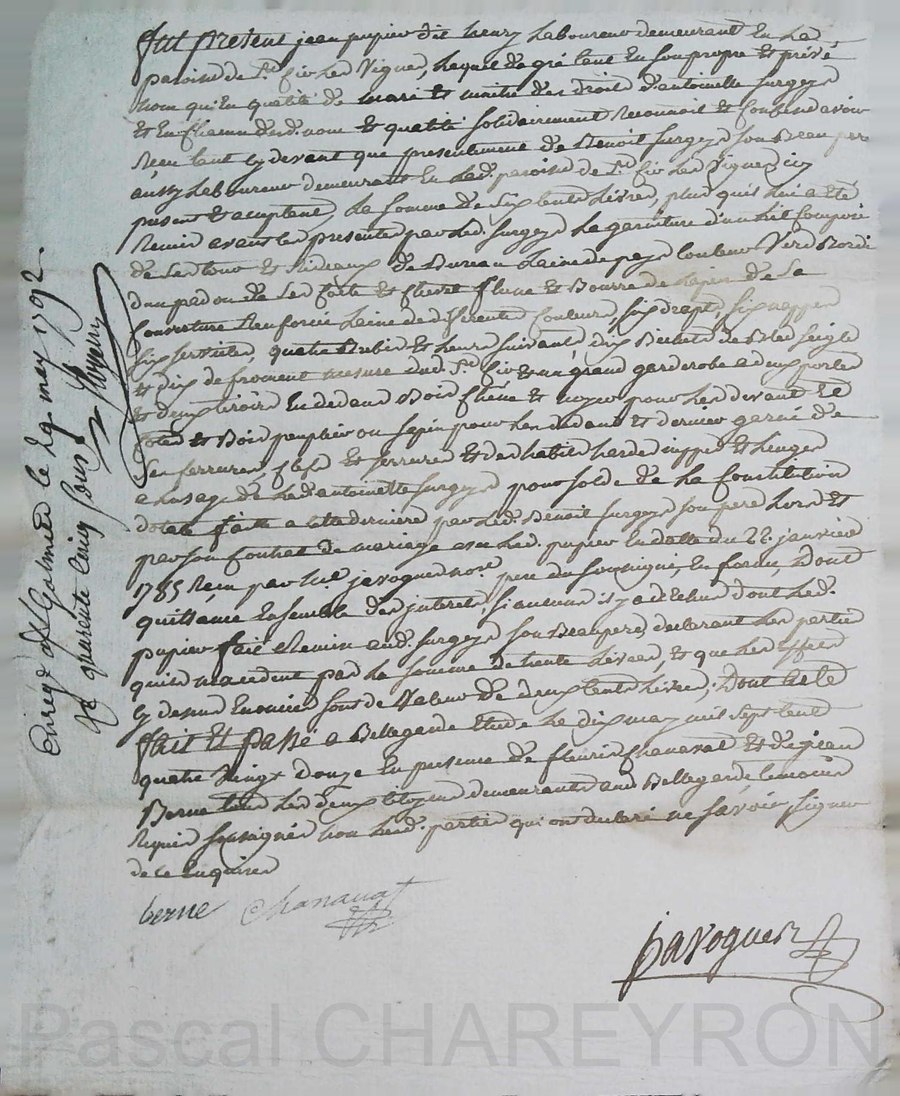 fut present jean pupier dit henry laboureur demeurant en la
paroisse de St. Cir les Vignes, lequel de gré tant en son propre et privé
nom qu'en qualité de mari et maitre des droits d'antoinette surgeys
et en chacun desd. nom et qualité solidairement reconnoit et confesse avoir
reçu tant cy devant que presentement de Benoit surgeys son Beau pere
aussy laboureur demeurant en lad. paroisse de St. Cir les Vignes icy
present et acceptant, la somme de six cents livres, plus qu'il lui a été
remis avant les presentes par led. surgeys la garniture d'un lit
de sa tour et Rideaux de Bureau laine de pays couleur Verd Bordé
d'un padou de
couverture renforcée laine de differente couleur, six draps, six nappes
six serviettes, quatre Brebis et leurs suivants, dix Bichets de Bled seigle
et dix de froment mesure dud. St. Cir et un grand garderobe a deux portes
et deux tiroirs en dedans Bois chêne et noyer pour les devant et
cotés et Bois peuplier ou sapin pour les dedans et dernier garni de
ses ferrures, clefs et serrures et des habits hardes nippes et linges
a l'usage de lad. antoinette surgeys pour solde de la Constitution
dotale faite a cette derniere par led. Benoit surgeys son pere lors et
par son Contrat de mariage avec led. pupier en datte du 22 janvier
1785 Recu par Me. javogues nore. pere du soussigné, en forme, Dont
quittance ensemble des interets, si aucuns il y a d'echus dont led.
pupier fait Remis aud. surgeys son Beaupere, declarant les parties
qu'ils n'excedent pas la somme de trente livres, et que les effets
cy dessus enoncés sont de valeur de deux cents livres, Dont acte
fait et passé a Bellegarde Etude le dix may mil sept cent
quatre Vingt douze en presence de fleuris Chanavat et de jean
Berne tous les deux Citoyens demeurants aud. Bellegarde temoins
requis soussignés non led. parties qui ont declaré ne savoir signer
de ce enquises
berne Chanavat
javogues
enrégé a St Galmier le 19 may 1792.
Rx quarente cinq sous